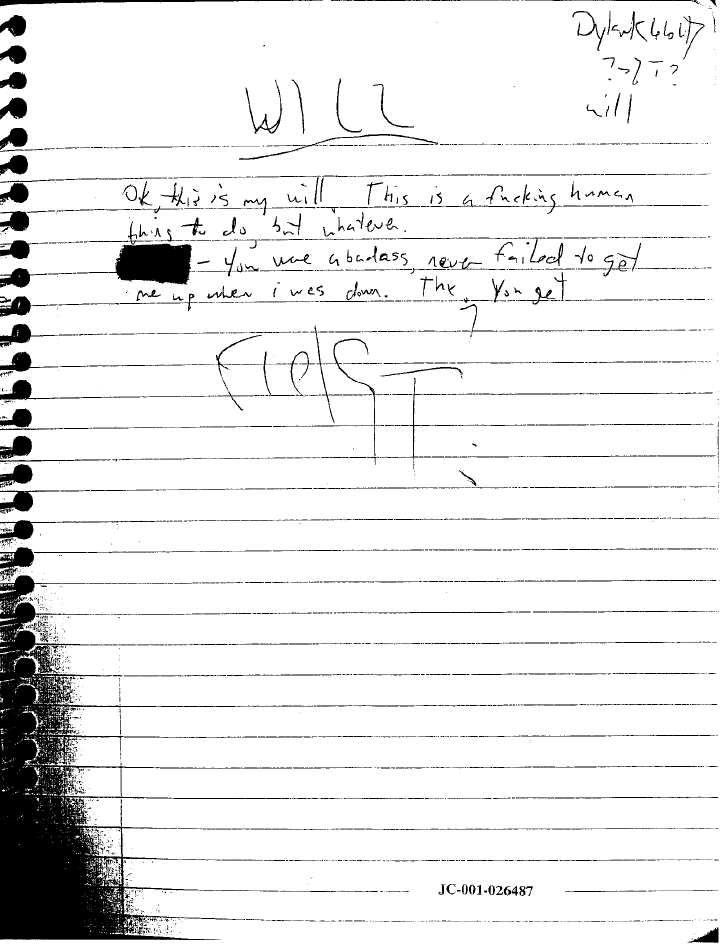 WILL
will
Ok, this is my will. This is a fucking human
thing to do, but whatever.
- You were a badass, never failed to get
me up when i was down. Thx, You get
JC-001-026487